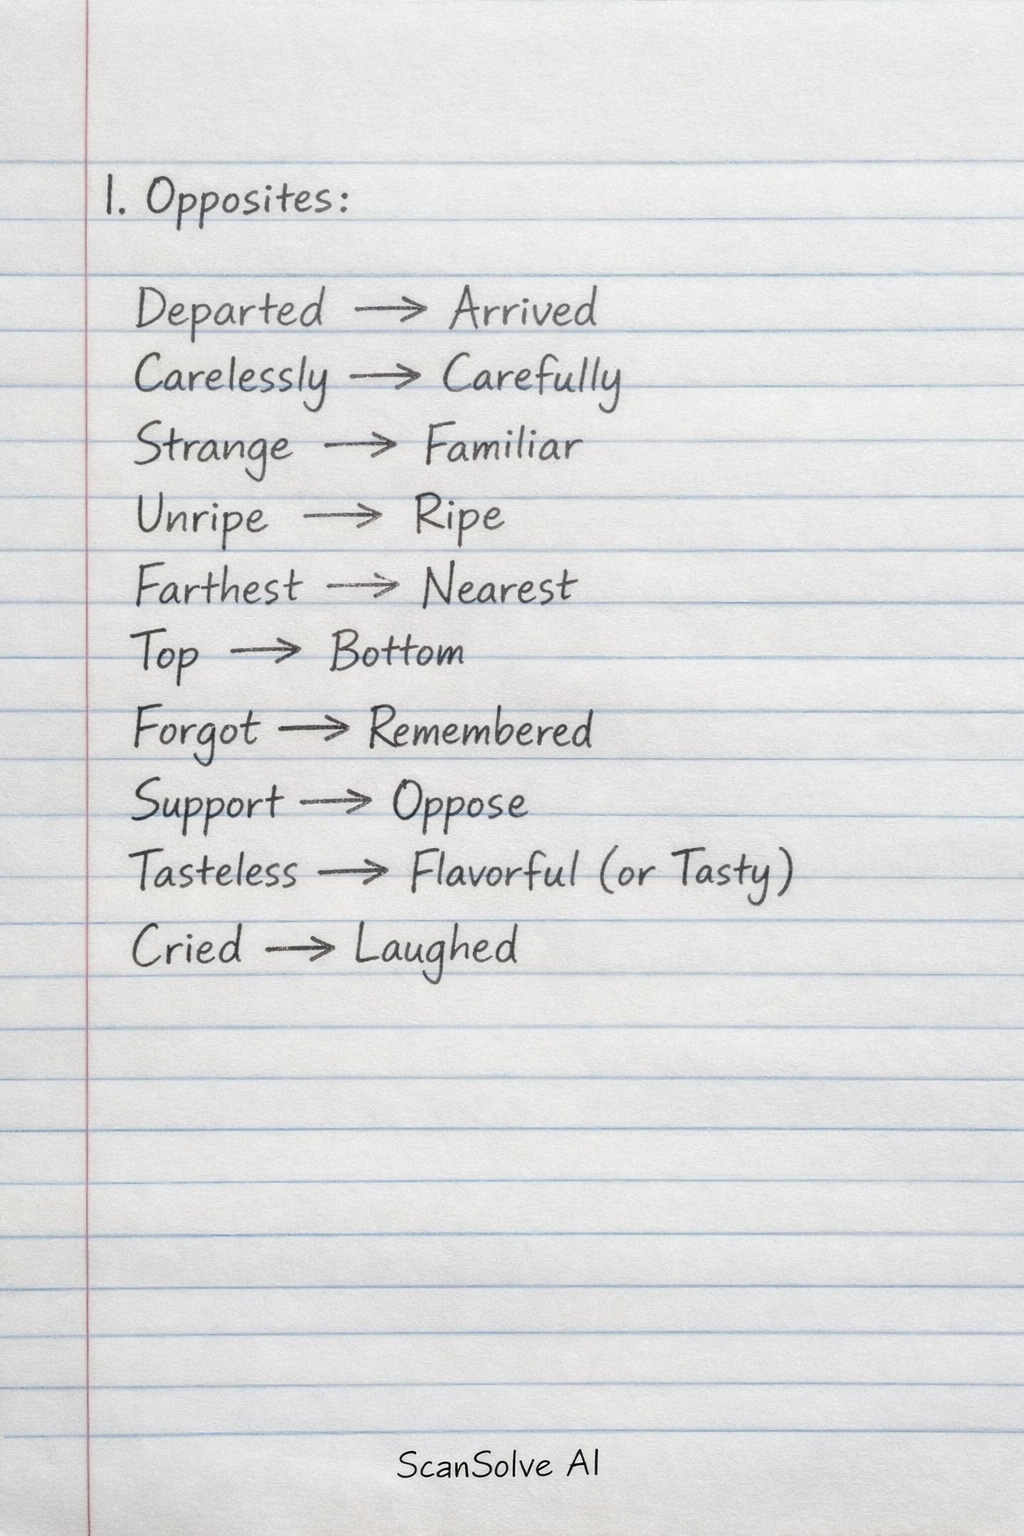 1. Opposites:
Departed → Arrived
Carelessly → Carefully
Strange → Familiar
Unripe → Ripe
Farthest → Nearest
Top → Bottom
Forgot → Remembered
Support → Oppose
Tasteless → Flavorful (or Tasty)
Cried → Laughed
ScanSolve AI